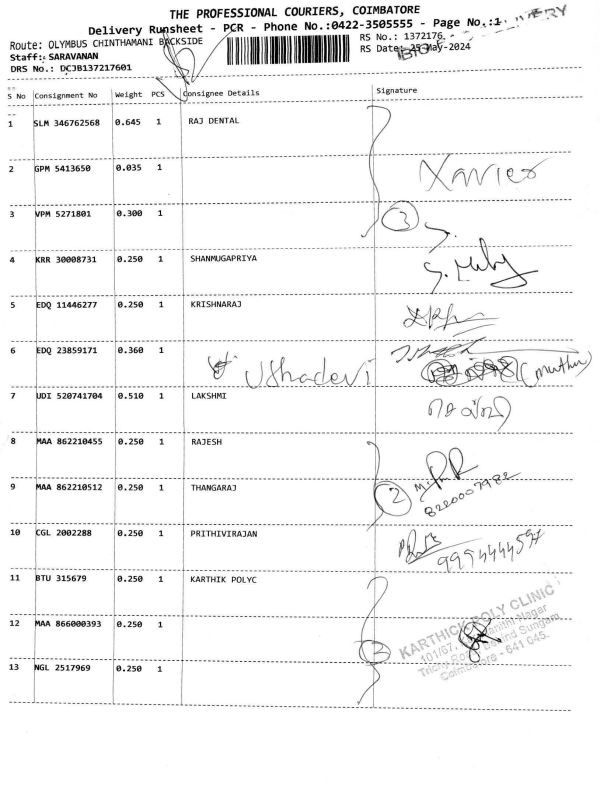 THE PROFESSIONAL COURIERS, COIMBATORE
Delivery Runsheet - PCR - Phone No.:0422-3505555 - Page No.:1
Route: OLYMBUS CHINTHAMANI BACKSIDE
RS No.: 1372176
Staff: SARAVANAN
RS Date: 25-May-2024
DRS No.: DCJB137217601
S No Consignment No Weight PCS Consignee Details Signature
1 SLM 346762568 0.645 1 RAJ DENTAL
2 GPM 5413650 0.035 1 Xavier
3 VPM 5271801 0.300 1 3
4 KRR 30008731 0.250 1 SHANMUGAPRIYA
5 EDQ 11446277 0.250 1 KRISHNARAJ
6 EDQ 23859171 0.360 1 Ushadevi (Muthu)
7 UDI 520741704 0.510 1 LAKSHMI
8 MAA 862210455 0.250 1 RAJESH
9 MAA 862210512 0.250 1 THANGARAJ 2 8220007982
10 CGL 2002288 0.250 1 PRITHIVIRAJAN 9994444597
11 BTU 315679 0.250 1 KARTHIK POLYC
12 MAA 866000393 0.250 1
KARTHICK POLY CLINIC
101/67, Nagar
Trichy Road, Behind Sungam
Coimbatore - 641 045.
13 NGL 2517969 0.250 1